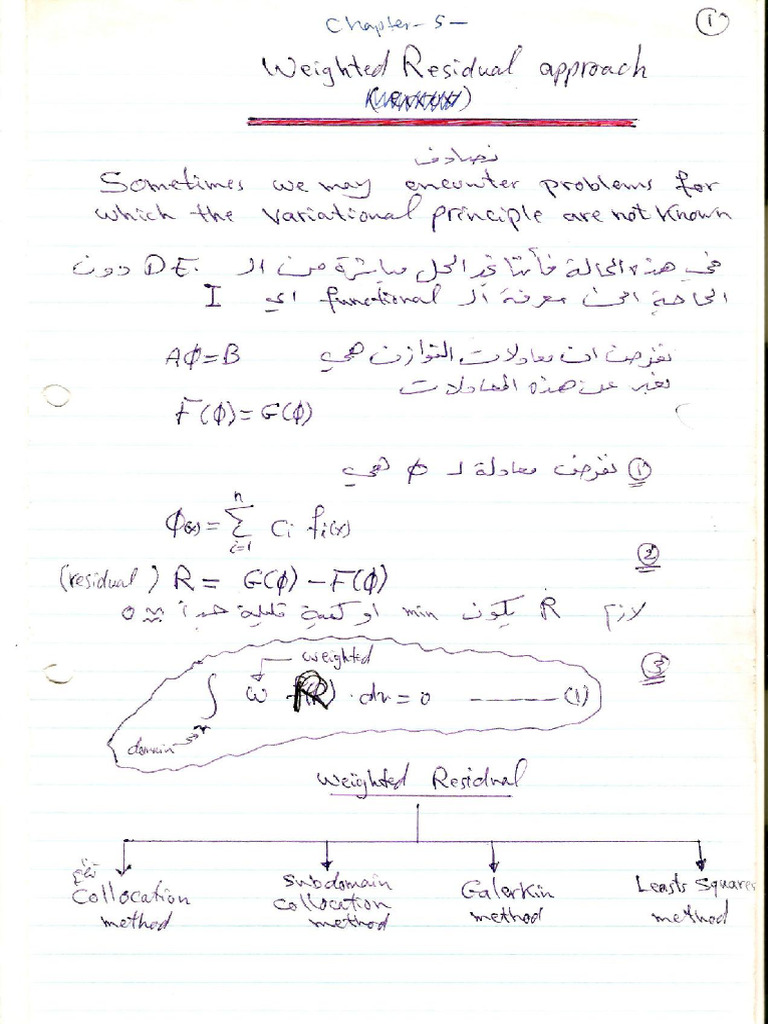 Chapter-5-
①
Weighted Residual approach
نصادف
Sometimes we may encounter problems for
which the variational principle are not known
في هذه الحالة فأننا نجد الحل مباشرة من الـ D.E. دون
الحاجة الى معرفة الـ functional اي I
نفرض ان معادلات التوازن هي Aφ=B
نعبر عن هذه المعادلات
F(φ)=G(φ)
① نفرض معادلة لـ φ هي
φ(x)=∑ᵢ₌₁ⁿ Ci fi(x)
②
(residual) R = G(φ)-F(φ)
لازم R يكون min او كمية قليلة جدا ≈ 0
③
weighted
∫ ω (R) . dv = 0 ——— (1)
domain
Weighted Residual
Collocation method
subdomain collocation method
Galerkin method
Leasts Squares method